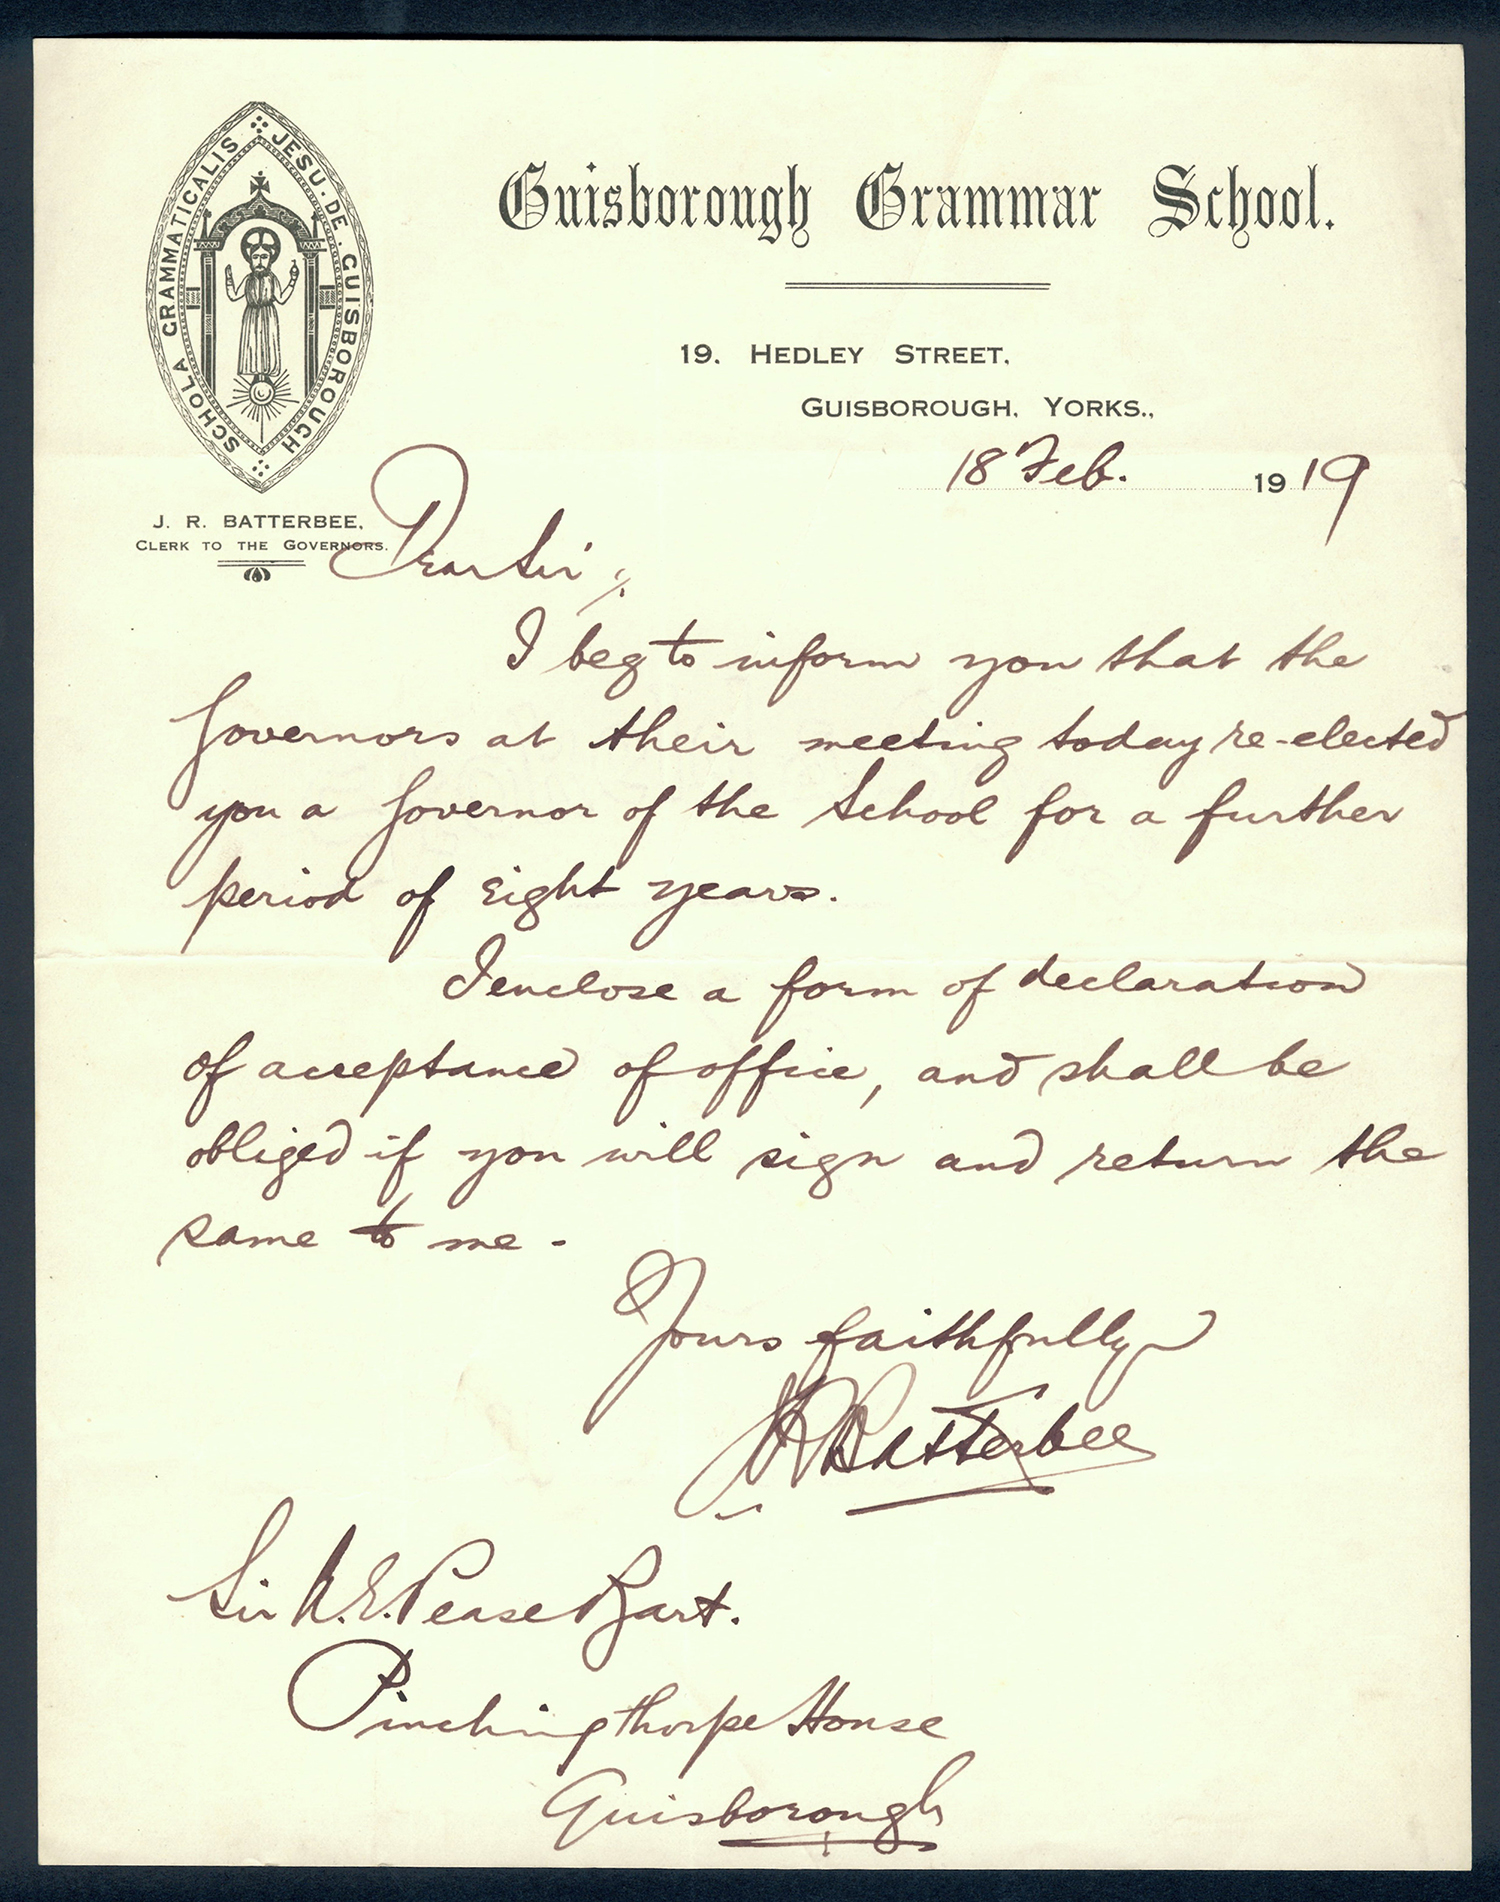 SCHOLA GRAMMATICALIS JESU · DE · GUISBOROUGH
Guisborough Grammar School.
19, HEDLEY STREET,
GUISBOROUGH, YORKS.,
18 Feb. 1919
J. R. BATTERBEE,
CLERK TO THE GOVERNORS.
Dear Sir,
I beg to inform you that the
Governors at their meeting today re-elected
you a Governor of the School for a further
period of eight years.
I enclose a form of declaration
of acceptance of office, and shall be
obliged if you will sign and return the
same to me -
Yours faithfully
JR Batterbee
Sir A. E. Pease Bart.
Pinchingthorpe House
Guisborough